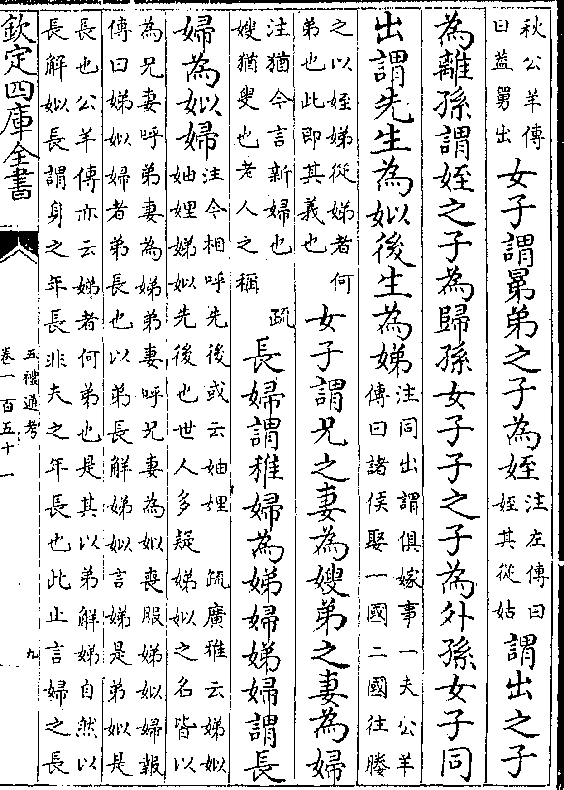 秋公羊傳
曰葢舅出
女子謂晜弟之子為姪
注左傳曰
姪其從姑
謂出之子
為離孫謂姪之子為歸孫女子子之子為外孫女子同
出謂先生為姒後生為娣
注同出謂俱嫁事一夫公羊
傳曰諸侯娶一國二國往媵
之以姪娣從娣者何
弟也此即其義也
女子謂兄之妻為嫂弟之妻為婦
注猶今言新婦也
嫂猶叟也老人之稱
疏
長婦謂稚婦為娣婦娣婦謂長
婦為姒婦
注今相呼先後或云妯娌
疏廣雅云娣姒
妯娌娣姒先後也世人多疑娣姒之名皆以
為兄妻呼弟妻為娣弟妻呼兄妻為姒喪服娣姒婦報
傳曰娣姒婦者弟長也以弟長解娣姒言娣是弟姒是
長也公羊傳亦云娣者何弟也是其以弟解娣自然以
長解姒長謂身之年長非夫之年長也此止言婦之長
欽定四庫全書
五禮通考
卷一百五十一
九